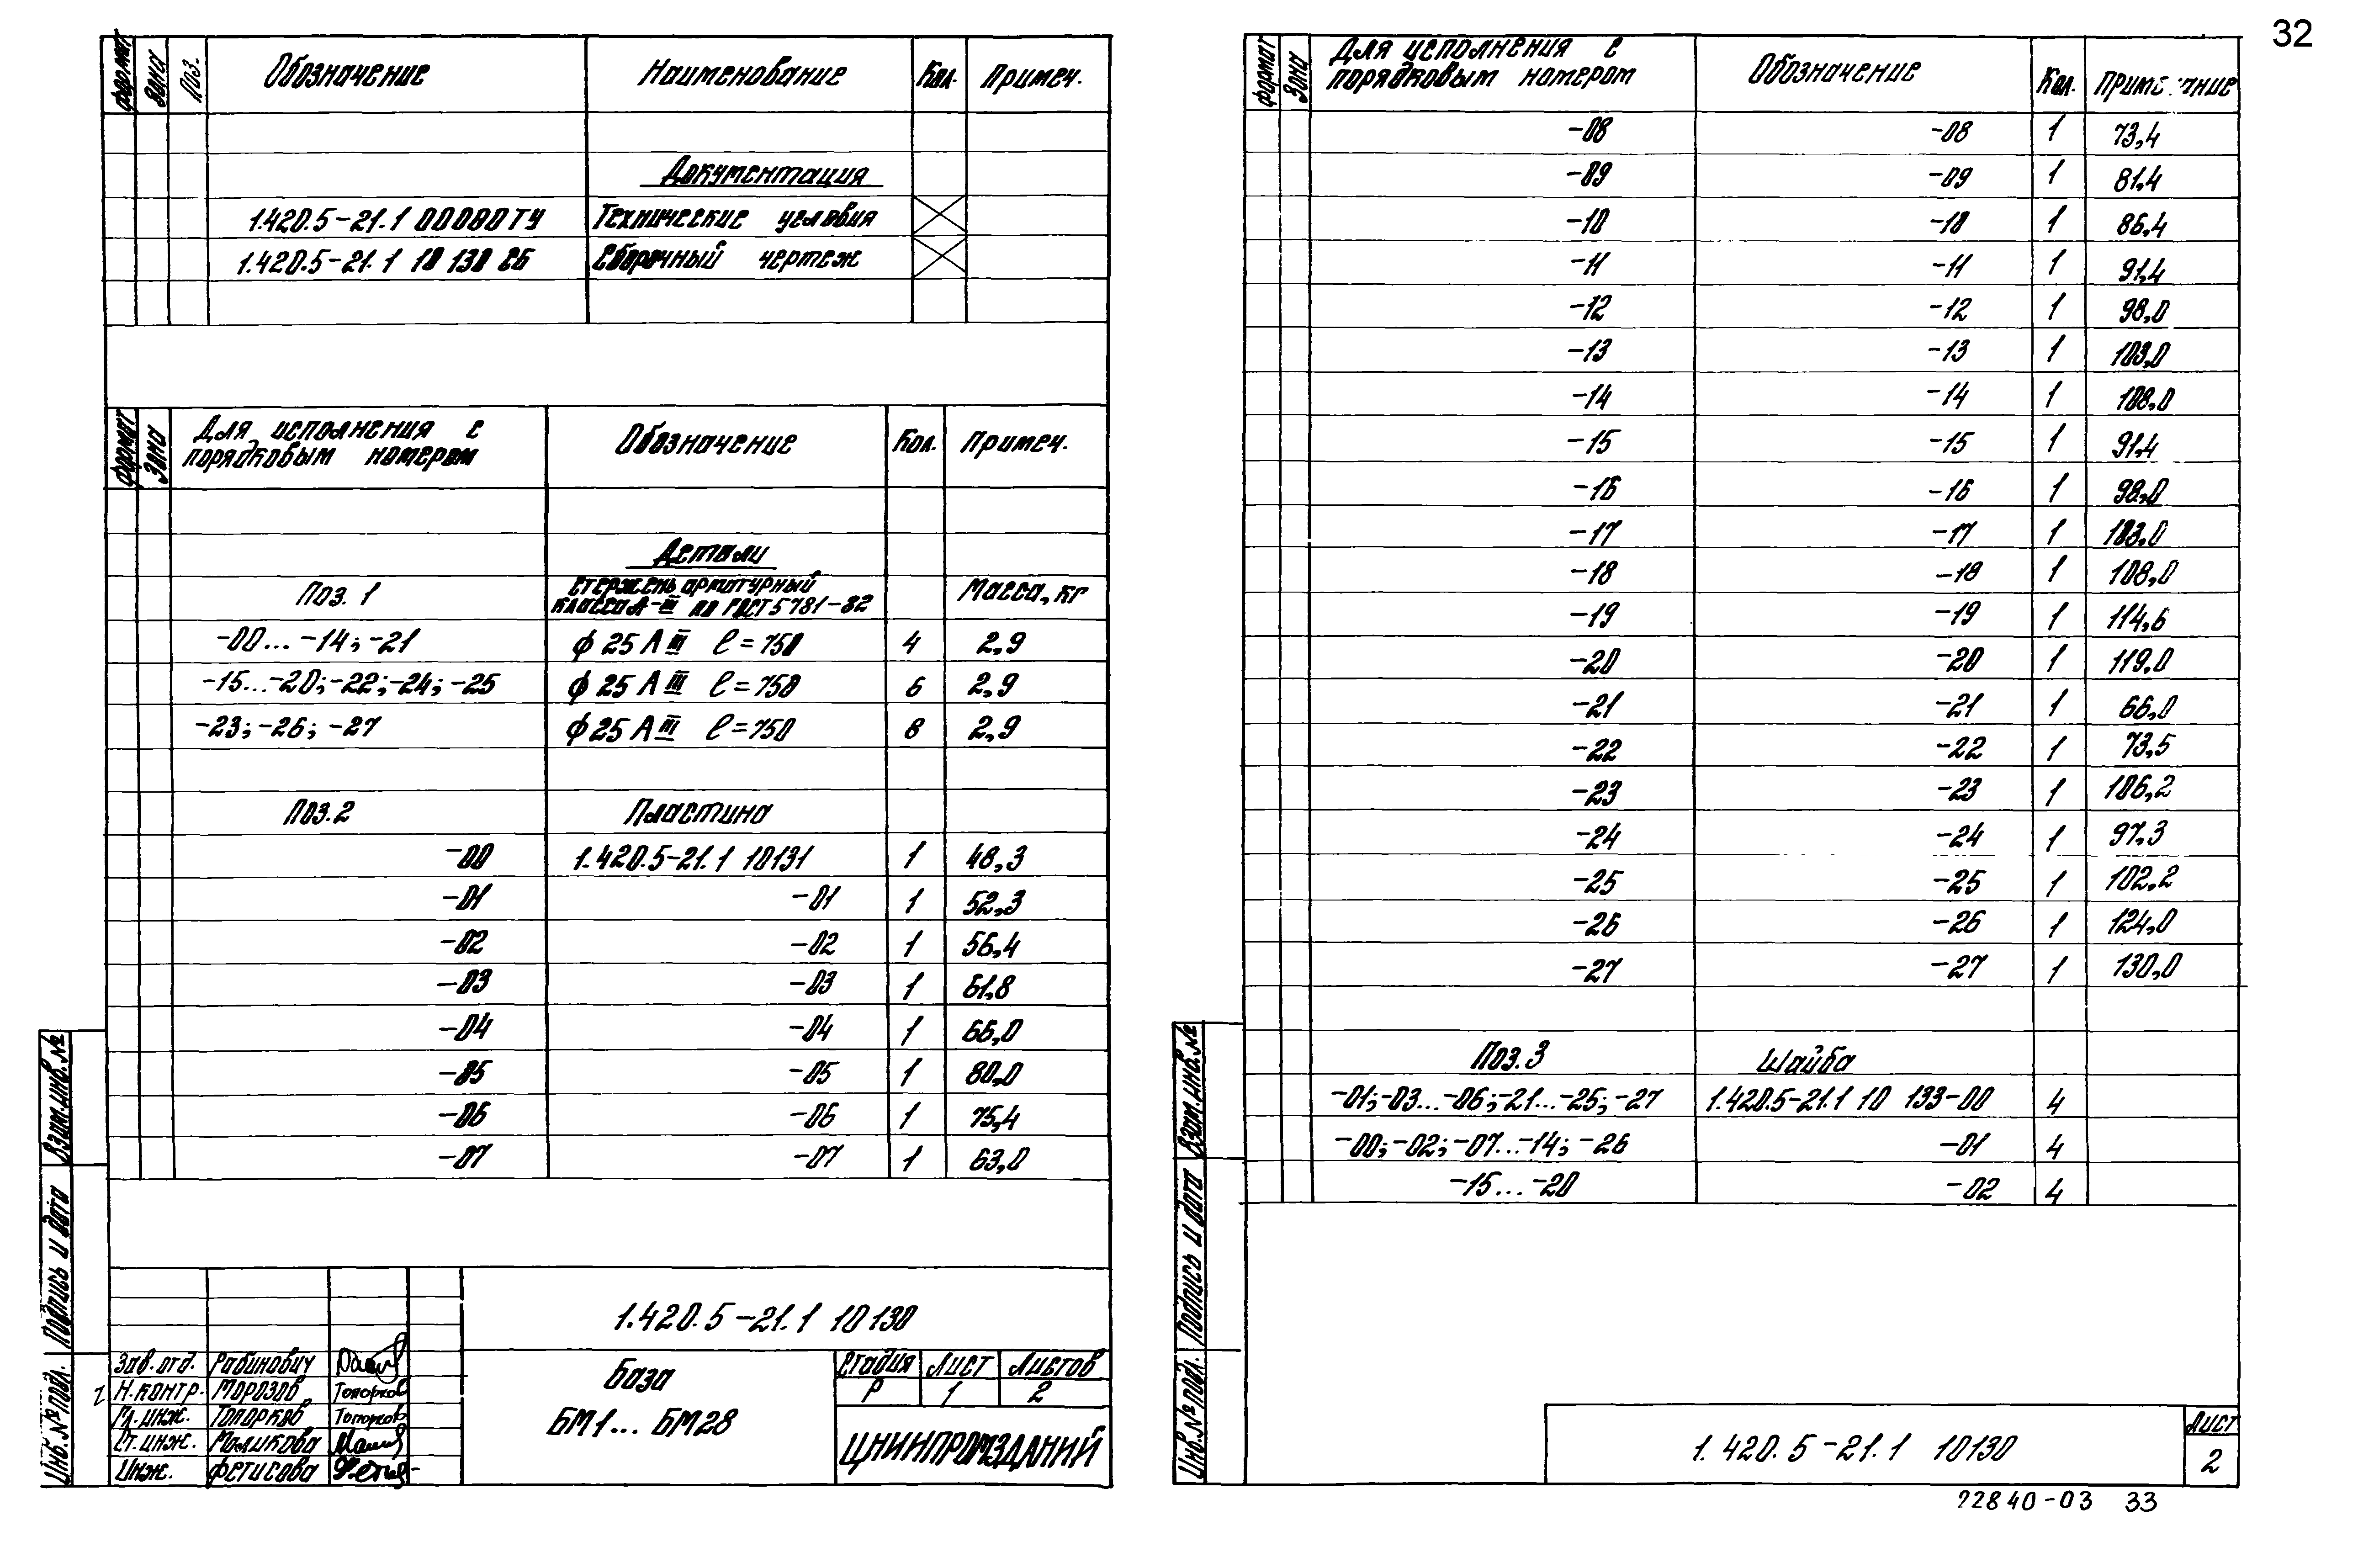 32
формат Зона Поз. Обозначение Наименование Кол. Примеч.
Документация
1.420.5-21.1 00000ТУ Технические условия
1.420.5-21.1 10 130 СБ Сборочный чертеж
формат Зона Для исполнения с порядковым номером Обозначение Кол. Примеч.
Детали
Поз. 1 Стержень арматурный класса А-III по ГОСТ 5781-82 Масса, кг
-00... -14; -21 ϕ 25 А III ℓ = 750 4 2,9
-15...-20; -22; -24; -25 ϕ 25 А III ℓ = 750 6 2,9
-23; -26; -27 ϕ 25 А III ℓ = 750 8 2,9
Поз. 2 Пластина
-00 1.420.5-21.1 10131 1 48,3
-01 -01 1 52,3
-02 -02 1 56,4
-03 -03 1 61,8
-04 -04 1 66,0
-05 -05 1 80,0
-06 -06 1 75,4
-07 -07 1 63,0
Взам.инв.№
Подпись и дата
Инв.№ подл.
1.420.5-21.1 10130
Зав.отд. Рабинович
Н.контр. Морозов Топорков
Гл.инж. Топорков Топорков
Ст.инж. Маликова
Инж. Фетисова
База
БМ1... БМ28
Стадия Лист Листов
Р 1 2
ЦНИИПРОМЗДАНИЙ
формат Зона Для исполнения с порядковым номером Обозначение Кол. Примечание
-08 -08 1 73,4
-09 -09 1 81,4
-10 -10 1 86,4
-11 -11 1 91,4
-12 -12 1 98,0
-13 -13 1 103,0
-14 -14 1 108,0
-15 -15 1 91,4
-16 -16 1 98,0
-17 -17 1 103,0
-18 -18 1 108,0
-19 -19 1 114,6
-20 -20 1 119,0
-21 -21 1 66,0
-22 -22 1 73,5
-23 -23 1 106,2
-24 -24 1 97,3
-25 -25 1 102,2
-26 -26 1 124,0
-27 -27 1 130,0
Поз. 3 Шайба
-01; -03...-06; -21...-25; -27 1.420.5-21.1 10 133-00 4
-00; -02; -07...-14; -26 -01 4
-15...-20 -02 4
Взам.инв.№
Подпись и дата
Инв.№ подл.
1.420.5-21.1 10130
Лист
2
22840-03 33